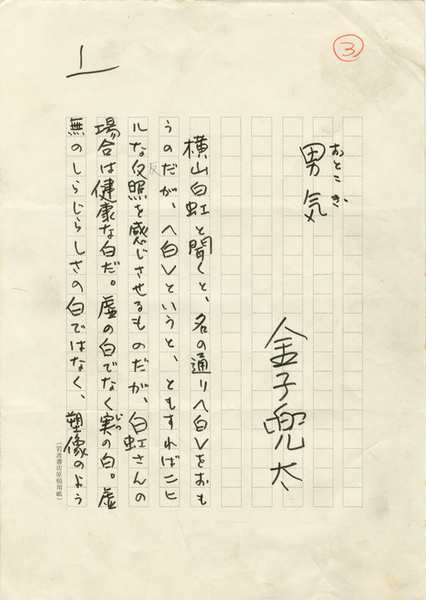 3
1
男気
おとこぎ
金子兜太
横山白虹と聞くと、名の通り〈白〉をおも
うのだが、〈白〉というと、ともすればニヒ
ルな反照を感じさせるものだが、白虹さんの
反
場合は健康な白だ。虚の白でなく実の白。虚
じつ
無のしらじらしさの白ではなく、塑像のよう
(岩波書店原稿用紙)